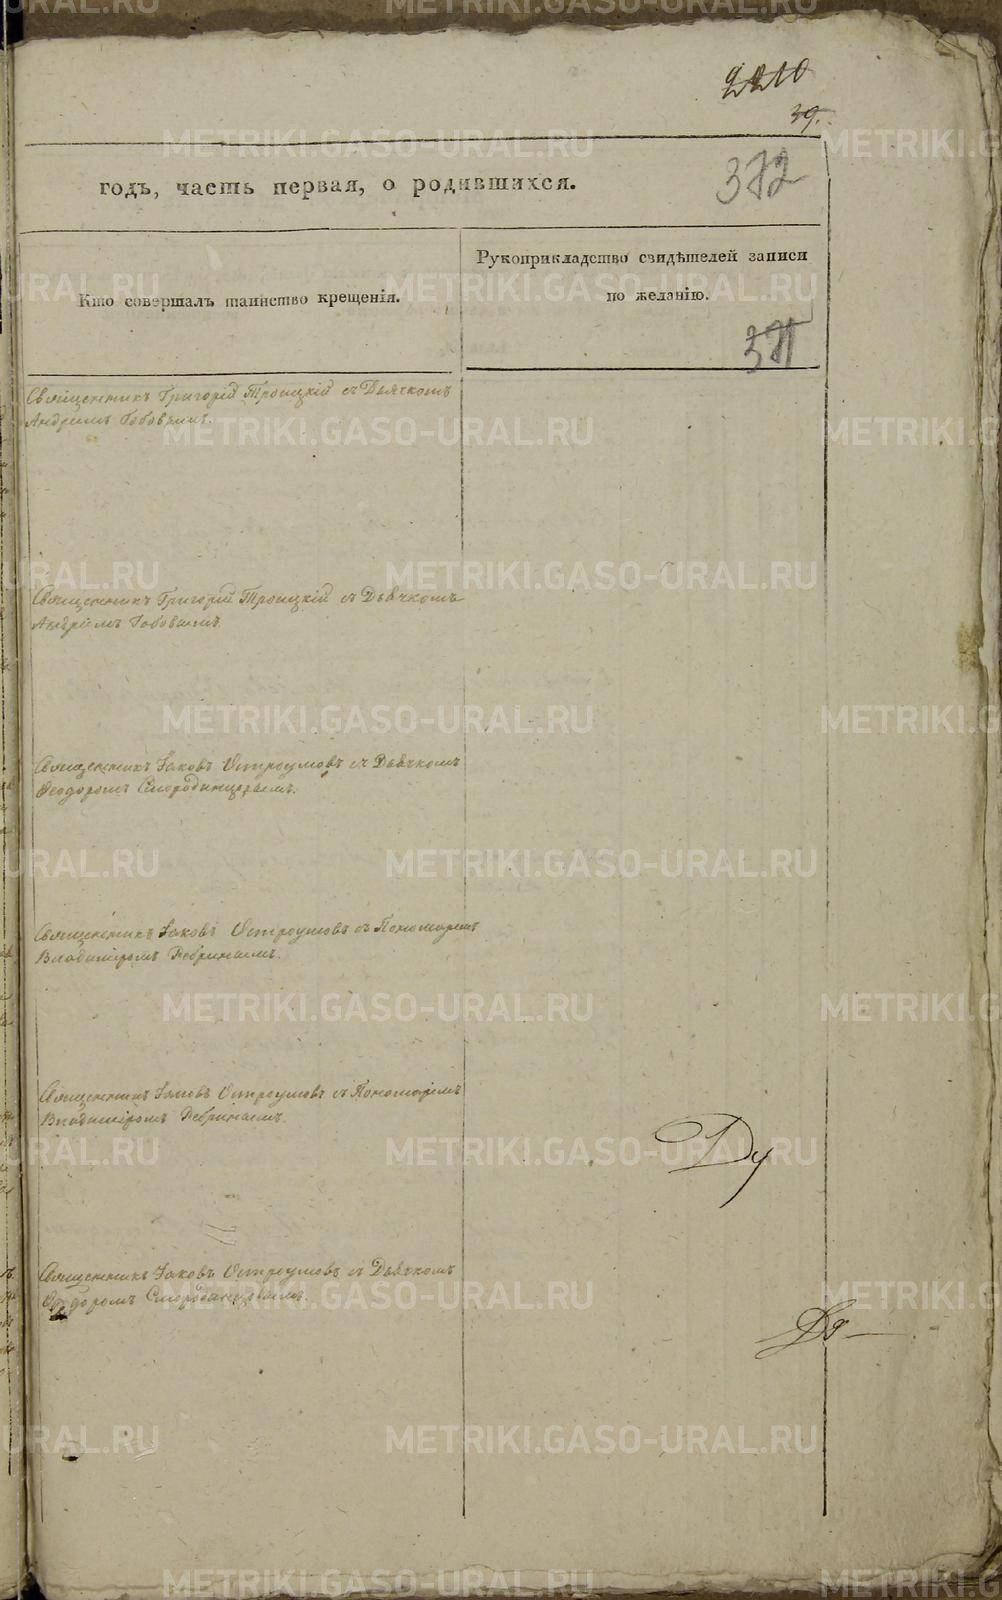 2210
39.
METRIKI.GASO-URAL.RU
годъ, часть первая, о родившихся.
372
Кто совершалъ таинство крещенія.
Рукоприкладство свидѣтелей записи
по желанію.
371
Священникъ Григорій Троицкій съ Дьячкомъ
Андріемъ Бобовымъ.
Священникъ Григорій Троицкій съ Дьячкомъ
Андріемъ Бобовымъ.
Священникъ Іаковъ Остроумовъ съ Дьячкомъ
Ѳеодоромъ Смородинцовымъ.
Священникъ Іаковъ Остроумовъ съ Пономаремъ
Владиміромъ Ребринымъ.
Священникъ Іаковъ Остроумовъ съ Пономаремъ
Владиміромъ Ребринымъ.
Ду
Священникъ Іаковъ Остроумовъ съ Дьячкомъ
Ѳеодоромъ Смородинцовымъ.